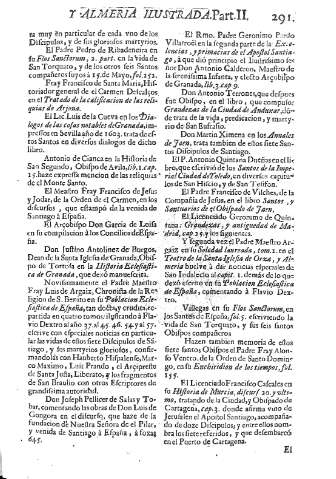 Y ALMERIA ILUSTRADA. Part. II. 291.
ta muy en particular de cada vno de los
Discipulos, y de sus gloriosos martyrios.
El Padre Pedro de Ribadeneira en
su Flos Sanctorum, 2. part. en la Vida de
San Torquato, y de los otros seis Santos
compañeros suyos 15. de Mayo, fol. 252.
Fray Francisco de Santa Maria, Historiador
general de el Carmen Descalços,
en el Tratado de la calificacion de las reliquias
de Arjona.
El Lic. Luis de la Cueva en los Dialogos
de las cosas notables de Granada, impressos
en Sevilla año de 1603. trata de estos
Santos en diversos dialogos de dicho
libro.
Antonio de Cianca en la Historia de
San Segundo, Obispo de Avila, lib. 1. cap.
15. haze expressa mencion de las reliquias
de el Monte Santo.
El Maestro Fray Francisco de Jesus
y Jodar, de la Orden de el Carmen, en los
discursos, que estampò de la venida de
Santiago à España.
El Arçobispo Don Garcia de Loaisa
en su compilacion à los Concilios de España.
Don Justino Antolinez de Burgos,
Dean de la Santa Iglesia de Granada, Obispo
de Tortosa en la Historia Eclesiastica
de Granada, que dexò manuscrita.
Novissimamente el Padre Maestro
Fray Luis de Argaiz, Chronista de la Religion
de S. Benito en su Poblacion Eclesiastica
de España, tan docta, y erudita, repartida
en quatro tomos, ilustrando à Flavio
Dextro
escrive con especiales noticias en particular
las vidas de estos siete Discipulos de Santiago,
y sus martyrios gloriosos, confirmandola
con Hauberto Hispalense, Marco
Maximo, Luis Prando, el Arcipreste
de Santa Justa, Liberato, y los fragmentos
de San Braulio con otros Escriptores de
grandissima autoridad.
Don Joseph Pellicer de Salas y Tobar,
comentando las obras de Don Luis de
Gongora en el discurso, que haze de la
fundacion de Nuestra Señora de el Pilar,
y venida de Santiago à España, à fojas
645.
El Rmo. Padre Geronimo Pardo
Villarroel en la segunda parte de la Excelencias,
y primacias de el Apostol Santiago,
à que diò principio el Ilustrissimo señor
Don Antonio Calderon, Maestro de
la serenissima Infanta, y electo Arçobispo
de Granada, lib. 3. cap. 9.
Don Antonio Terrones, que despues
fue Obispo, en el libro, que compuso
Grandezas de la Ciudad de Andujar, donde
trata de la vida, predicacion, y martyrio
de San Eufrasio.
Don Martin Ximena en los Annales
de Jaen, trata tambien de estos siete Santos
Discipulos de Santiago.
El P. Antonio Quintana Dueñas en el libro,
que escrivio de los Santos de la Imperial
Ciudad de Toledo, en diversos capitulos
de San Hiscio, y de San Tesifon.
El Padre Francisco de Vilches, de la
Compañia de Jesus, en el libro Santos, y
Santuarios de el Obispado de Jaen.
El Licenciado Geronimo de Quintana:
Grandezas, y antiguedad de Madrid,
cap. 25. y los siguientes.
Y segunda vez el Padre Maestro Argaiz
en su Soledad laureada, tom. 2. en el
Teatro de la Santa Iglesia de Orza, y Almeria
buelve à dar noticias especiales de
San Indalecio al capit. 1. demàs de lo que
dexò escrito en su Poblacion Eclesiastica
de España, comentando à Flavio Dextro.
Villegas en su Flos Sanctorum, en
los Santos de España, fol. 5. escriviendo la
vida de San Torquato, y sus seis santos
Obispos compañeros
Hazen tambien memoria de ellos
siete santos Obispos el Padre Fray Alonso
Venero, de la Orden de Santo Domingo,
en su Enchiridion de los tiempos, fol.
155.
El Licenciado Francisco Cascales en
su Historia de Murcia, discurs. 20. y vltimo,
tratando de la Ciudad, y Obispado de
Cartagena, cap. 3. donde afirma vino de
Jerusalen el Apostol Santiago, acompañado
de doze Discipulos; y entre ellos nombra
los siete referidos, y que desembarcò
en el Puerto de Cartagena.
El